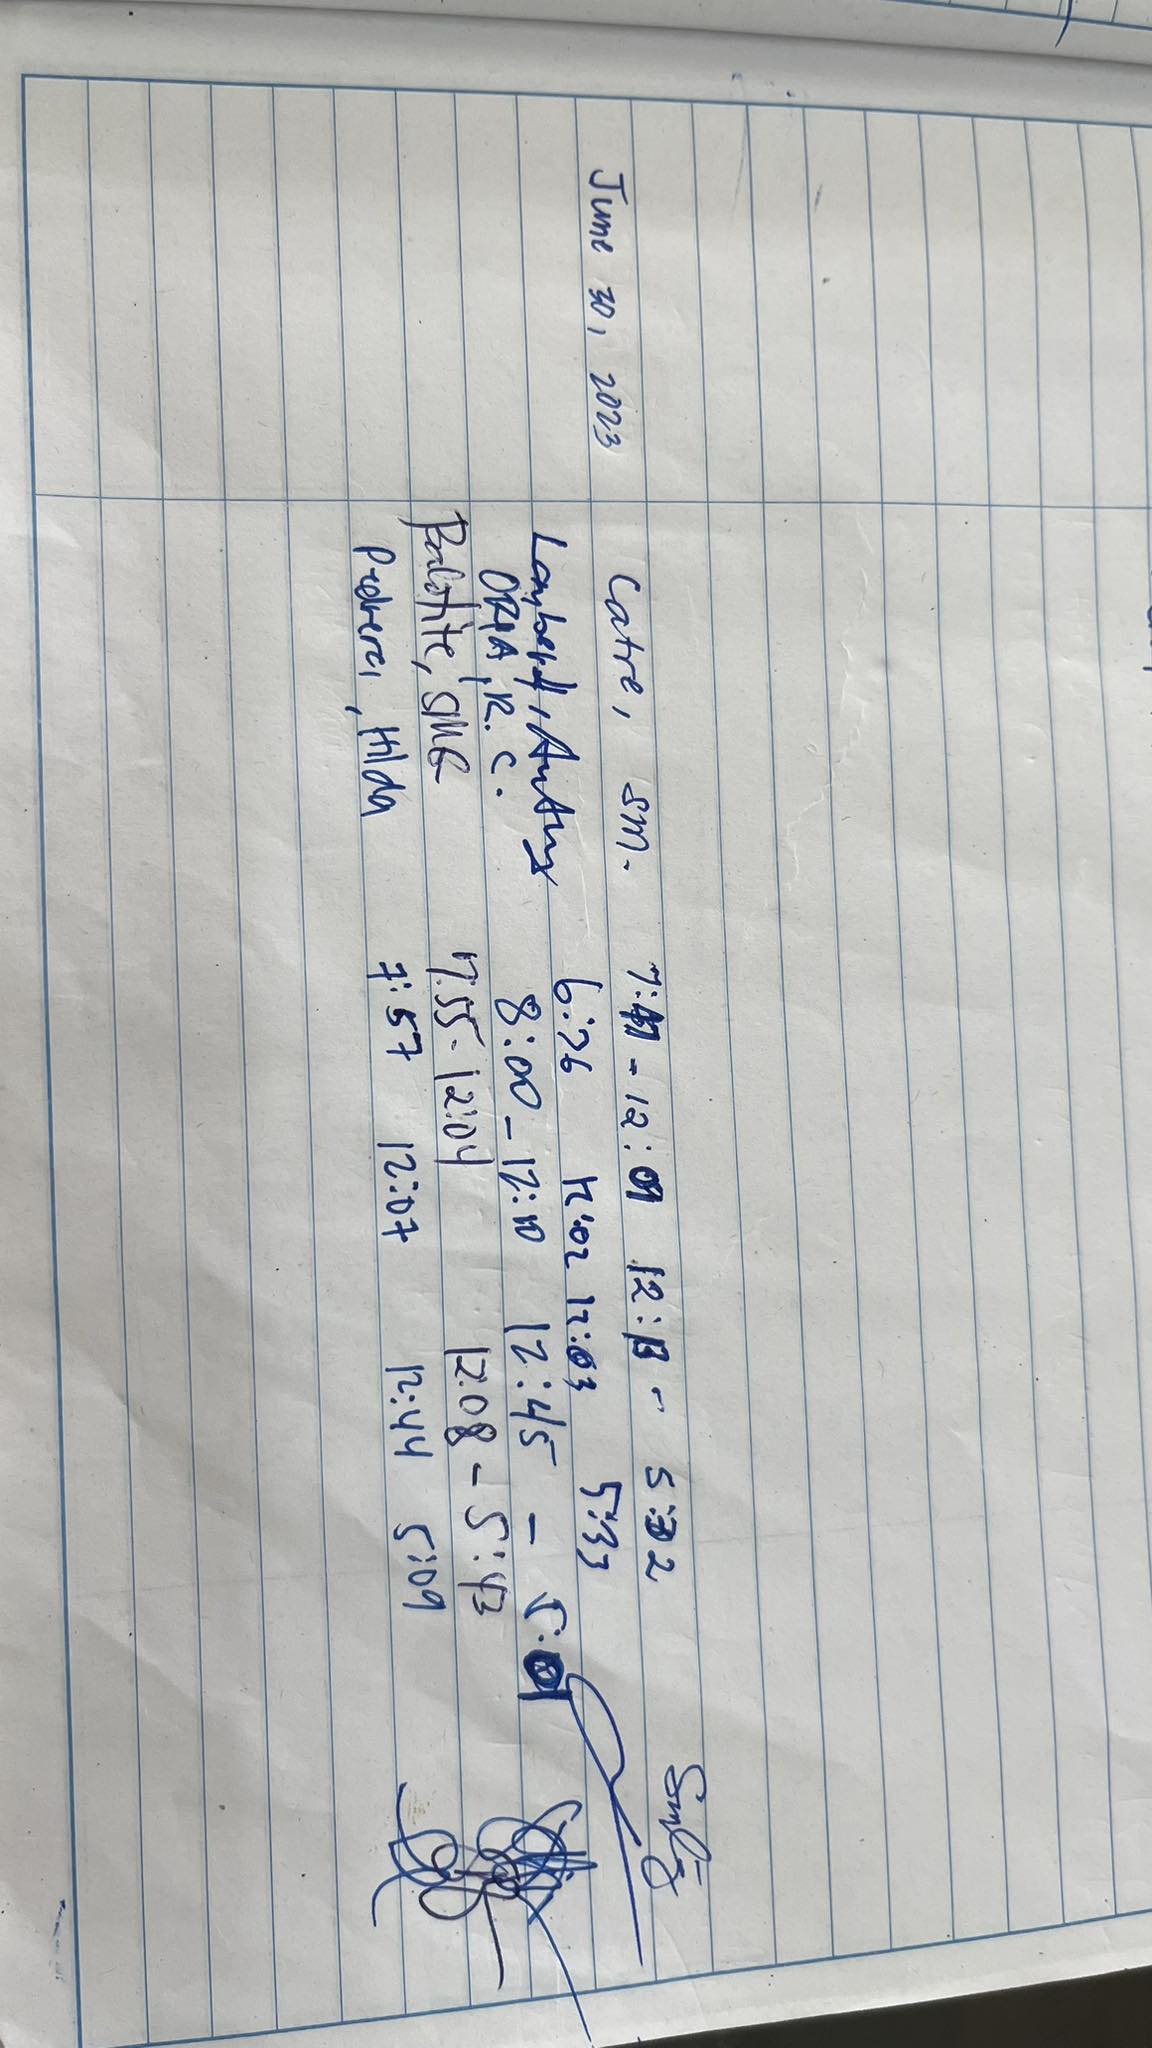 June 30, 2023
Catre, SM. 7: - 12:09 12:13 - 5:32
6:26 12:02 12:03 5:33
ORIA, R. C. 8:00 - 12:10 12:45 - 5:01
Balotite, SMG 7:55 - 12:04 12:08 - 5:43
Pedrera, Hilda 7:57 12:07 12:44 5:09